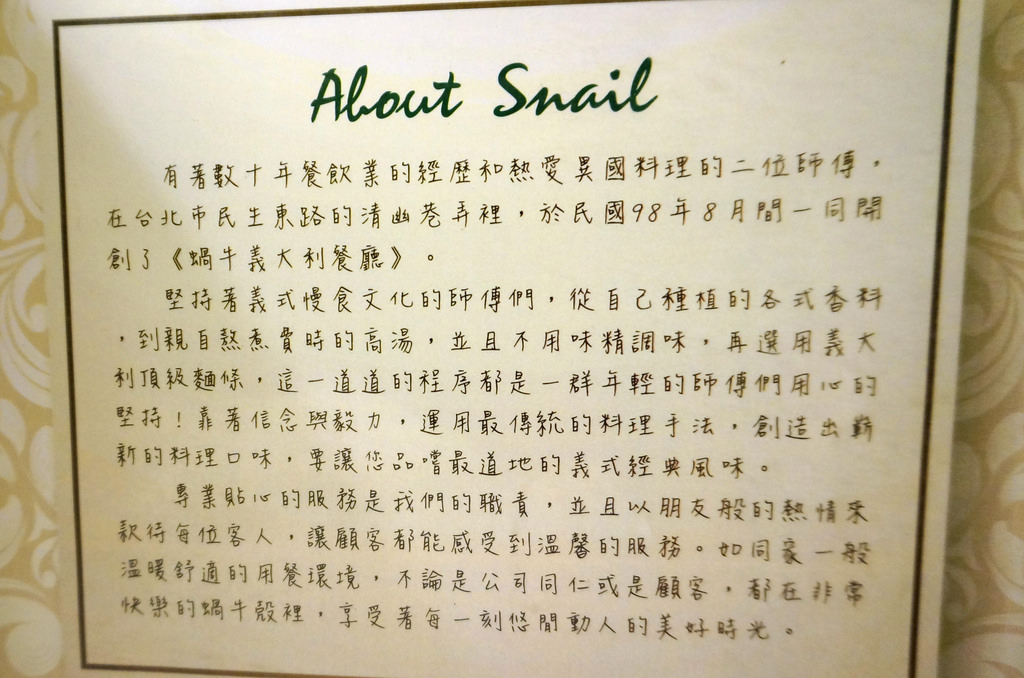 About Snail
有著數十年餐飲業的經歷和熱愛異國料理的二位師傅，
在台北市民生東路的清幽巷弄裡，於民國98年8月間一同開
創了《蝸牛義大利餐廳》。
堅持著義式慢食文化的師傅們，從自己種植的各式香料
，到親自熬煮費時的高湯，並且不用味精調味，再選用義大
利頂級麵條，這一道道的程序都是一群年輕的師傅們用心的
堅持！靠著信念與毅力，運用最傳統的料理手法，創造出嶄
新的料理口味，要讓您品嚐最道地的義式經典風味。
專業貼心的服務是我們的職責，並且以朋友般的熱情來
款待每位客人，讓顧客都能感受到溫馨的服務。如同家一般
溫暖舒適的用餐環境，不論是公司同仁或是顧客，都在非常
快樂的蝸牛殼裡，享受著每一刻悠閒動人的美好時光。